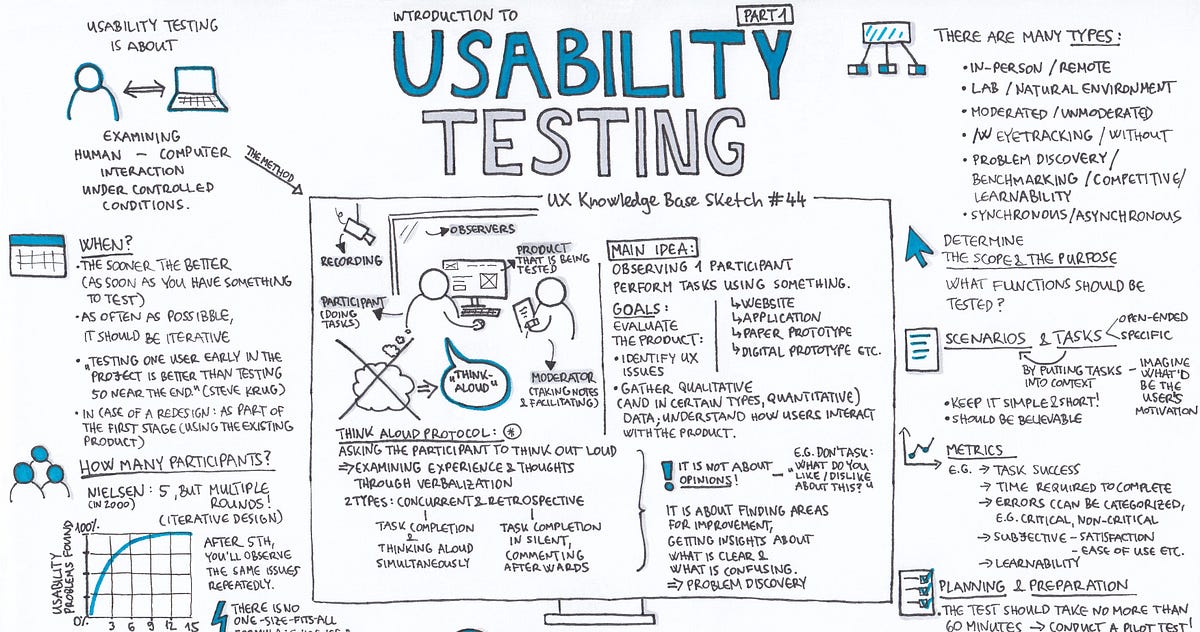 INTRODUCTION TO
PART 1
USABILITY
TESTING
UX Knowledge Base Sketch #44
USABILITY TESTING
IS ABOUT
EXAMINING
HUMAN – COMPUTER
INTERACTION
UNDER CONTROLLED
CONDITIONS.
THE METHOD
WHEN?
• THE SOONER THE BETTER
(AS SOON AS YOU HAVE SOMETHING
TO TEST)
• AS OFTEN AS POSSIBBLE,
IT SHOULD BE ITERATIVE
• „TESTING ONE USER EARLY IN THE
PROJECT IS BETTER THAN TESTING
50 NEAR THE END." (STEVE KRUG)
• IN CASE OF A REDESIGN: AS PART OF
THE FIRST STAGE (USING THE EXISTING
PRODUCT)
HOW MANY PARTICIPANTS?
NIELSEN: 5, BUT MULTIPLE
(IN 2000) ROUNDS!
(ITERATIVE DESIGN)
100%
USABILITY
PROBLEMS FOUND
0%
3 6 9 12 15
AFTER 5TH,
YOU'LL OBSERVE
THE SAME ISSUES
REPEATEDLY.
THERE IS NO
ONE-SIZE-FITS-ALL
RECORDING
OBSERVERS
PRODUCT
THAT IS BEING
TESTED
PARTICIPANT
(DOING
TASKS)
„THINK-
ALOUD"
MODERATOR
(TAKING NOTES
& FACILITATING)
MAIN IDEA:
OBSERVING 1 PARTICIPANT
PERFORM TASKS USING SOMETHING.
↳ WEBSITE
↳ APPLICATION
↳ PAPER PROTOTYPE
↳ DIGITAL PROTOTYPE ETC.
GOALS:
EVALUATE
THE PRODUCT:
• IDENTIFY UX
ISSUES
• GATHER QUALITATIVE
(AND IN CERTAIN TYPES, QUANTITATIVE)
DATA, UNDERSTAND HOW USERS INTERACT
WITH THE PRODUCT.
THINK ALOUD PROTOCOL: *
ASKING THE PARTICIPANT TO THINK OUT LOUD
⇒ EXAMINING EXPERIENCE & THOUGHTS
THROUGH VERBALIZATION
2 TYPES: CONCURRENT & RETROSPECTIVE
TASK COMPLETION
&
THINKING ALOUD
SIMULTANEOUSLY
TASK COMPLETION
IN SILENT,
COMMENTING
AFTERWARDS
! IT IS NOT ABOUT
OPINIONS! –
E.G. DON'T ASK:
"WHAT DO YOU
LIKE / DISLIKE
ABOUT THIS?"
IT IS ABOUT FINDING AREAS
FOR IMPROVEMENT,
GETTING INSIGHTS ABOUT
WHAT IS CLEAR &
WHAT IS CONFUSING.
⇒ PROBLEM DISCOVERY
THERE ARE MANY TYPES:
• IN-PERSON / REMOTE
• LAB / NATURAL ENVIRONMENT
• MODERATED / UNMODERATED
• /W EYETRACKING / WITHOUT
• PROBLEM DISCOVERY /
BENCHMARKING / COMPETITIVE /
LEARNABILITY
• SYNCHRONOUS / ASYNCHRONOUS
DETERMINE
THE SCOPE & THE PURPOSE
WHAT FUNCTIONS SHOULD BE
TESTED?
SCENARIOS & TASKS
OPEN-ENDED
SPECIFIC
BY PUTTING TASKS
INTO CONTEXT
– IMAGINE
WHAT'D
BE THE
USER'S
MOTIVATION
• KEEP IT SIMPLE & SHORT!
• SHOULD BE BELIEVABLE
METRICS
E.G. → TASK SUCCESS
→ TIME REQUIRED TO COMPLETE
→ ERRORS CCAN BE CATEGORIZED,
E.G. CRITICAL, NON-CRITICAL
→ SUBJECTIVE – SATISFACTION
– EASE OF USE ETC.
→ LEARNABILITY
PLANNING & PREPARATION
• THE TEST SHOULD TAKE NO MORE THAN
60 MINUTES → CONDUCT A PILOT TEST!